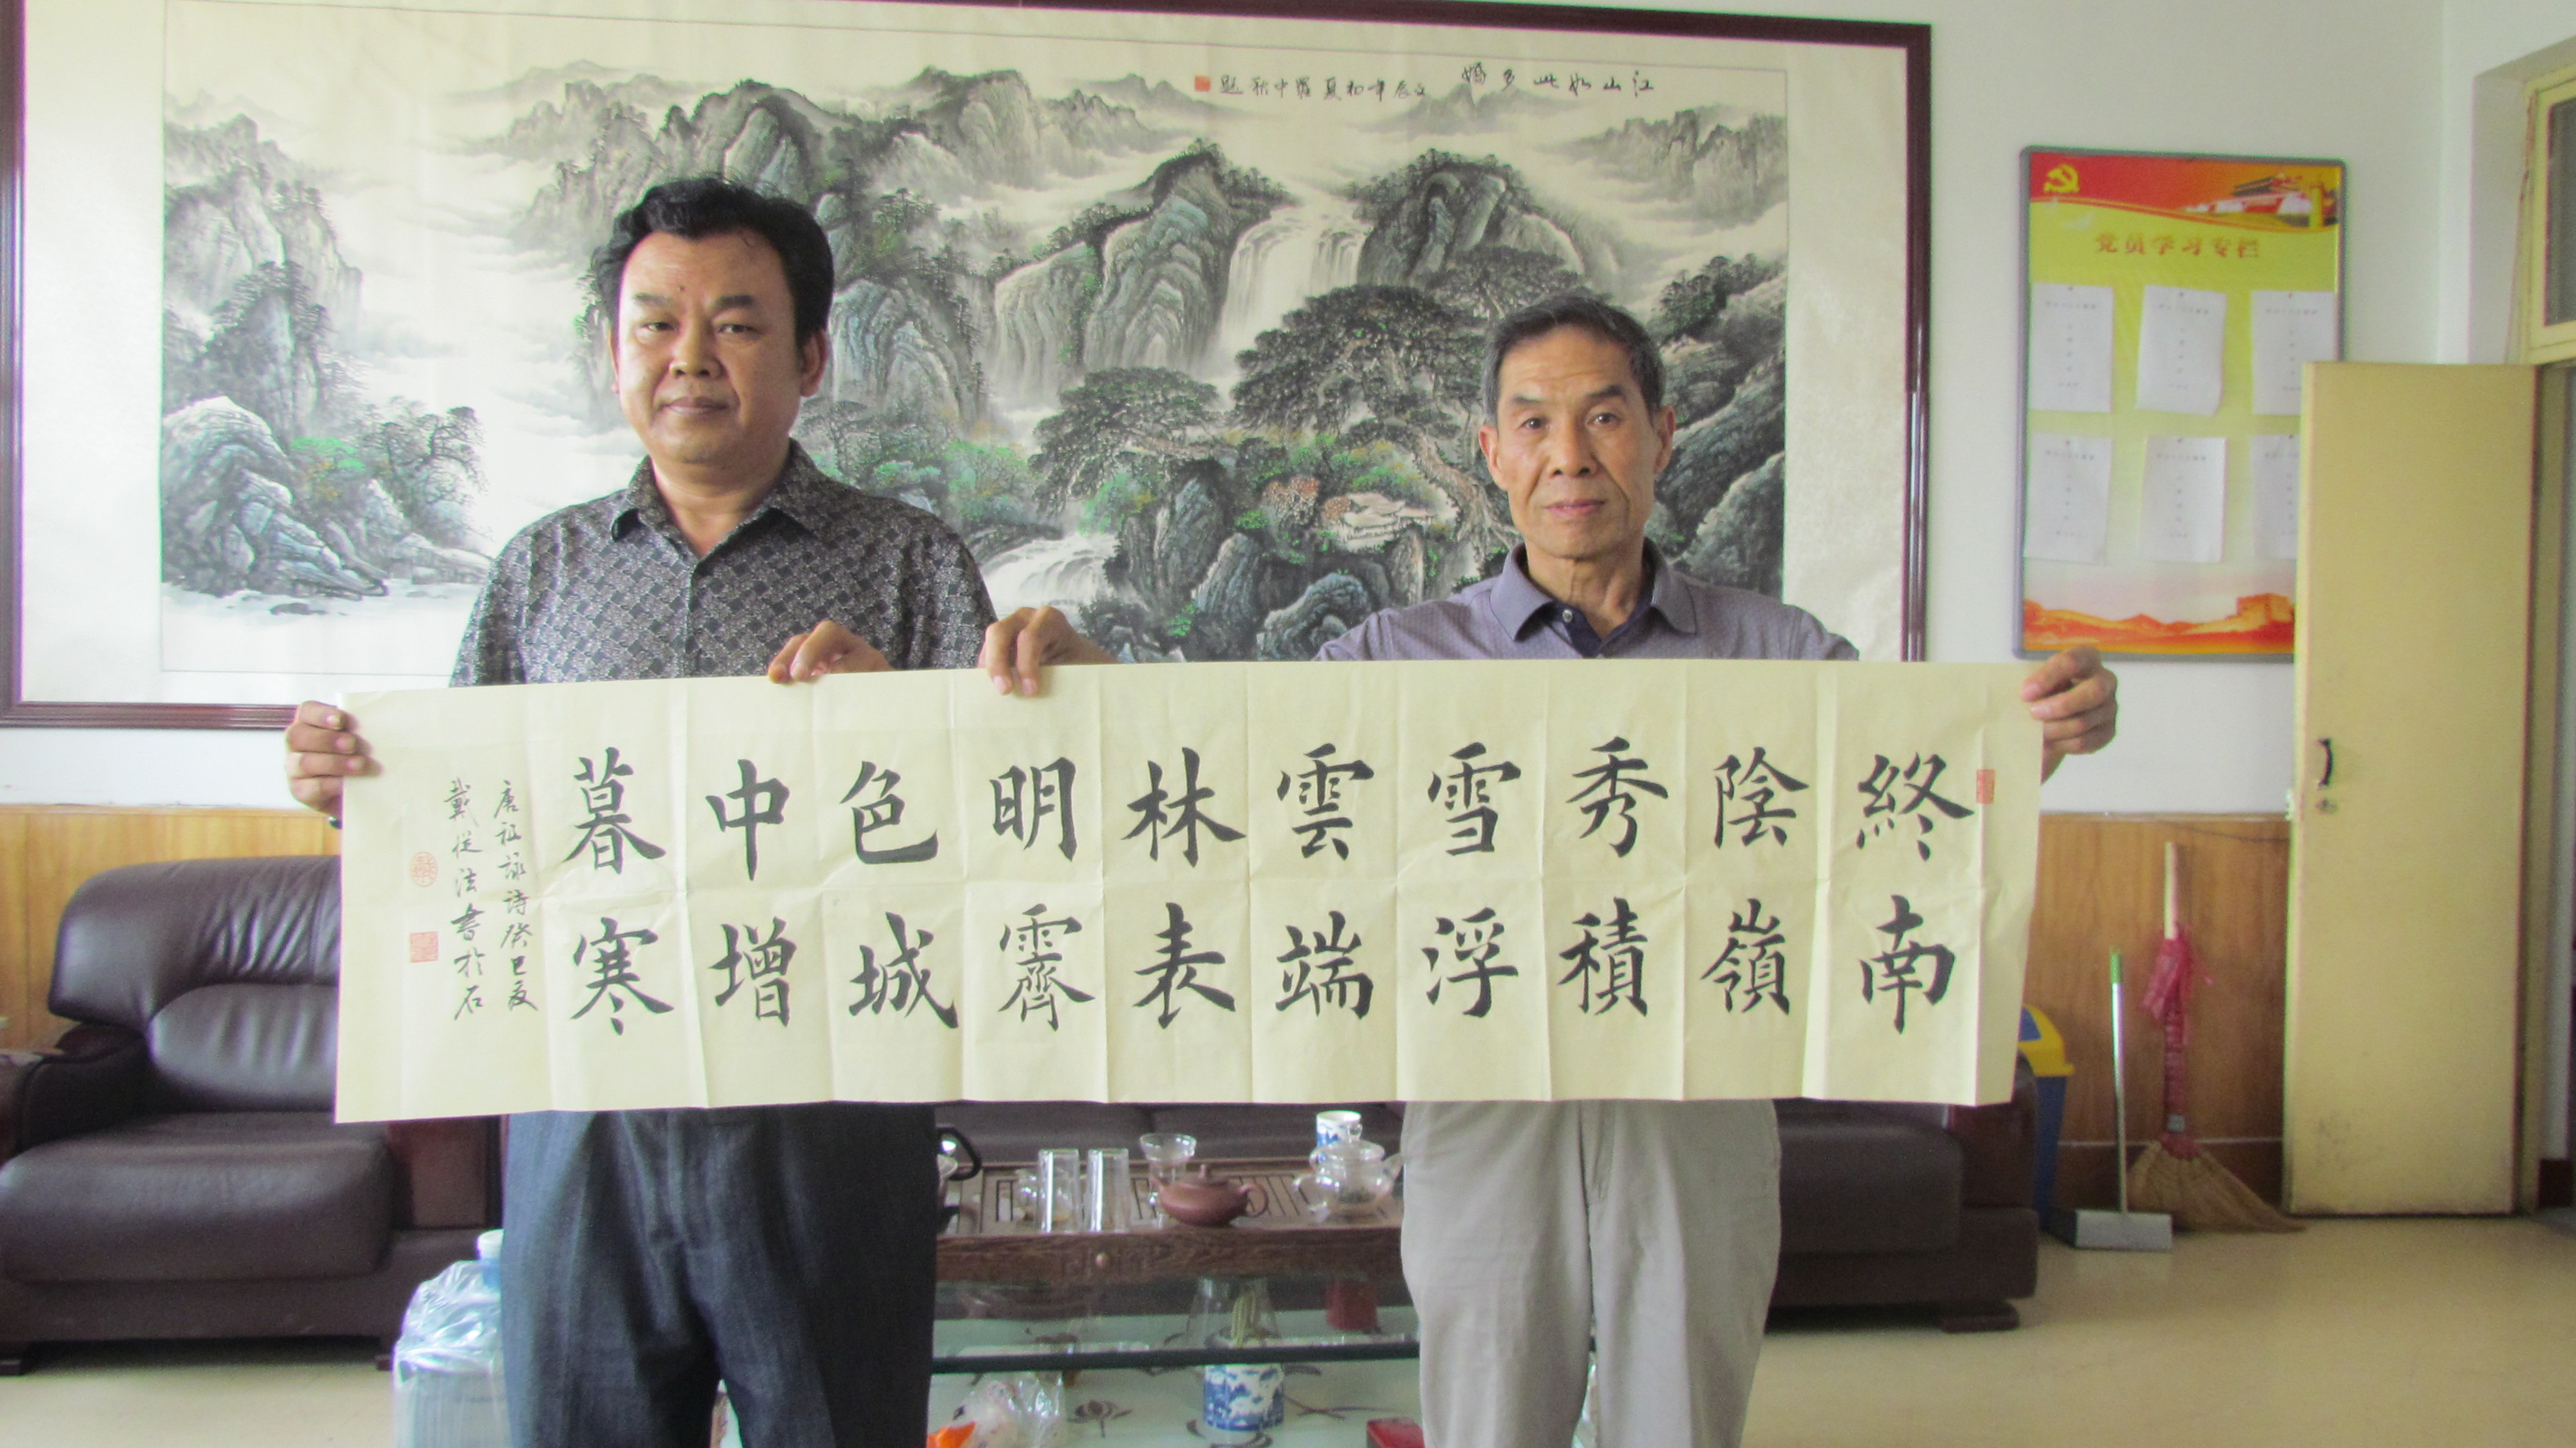 江山如此多娇
党员学习专栏
終南
陰嶺
秀積
雪浮
雲端
林表
明霽
色城
中增
暮寒
唐祖詠詩癸巳夏
戴從法書於石